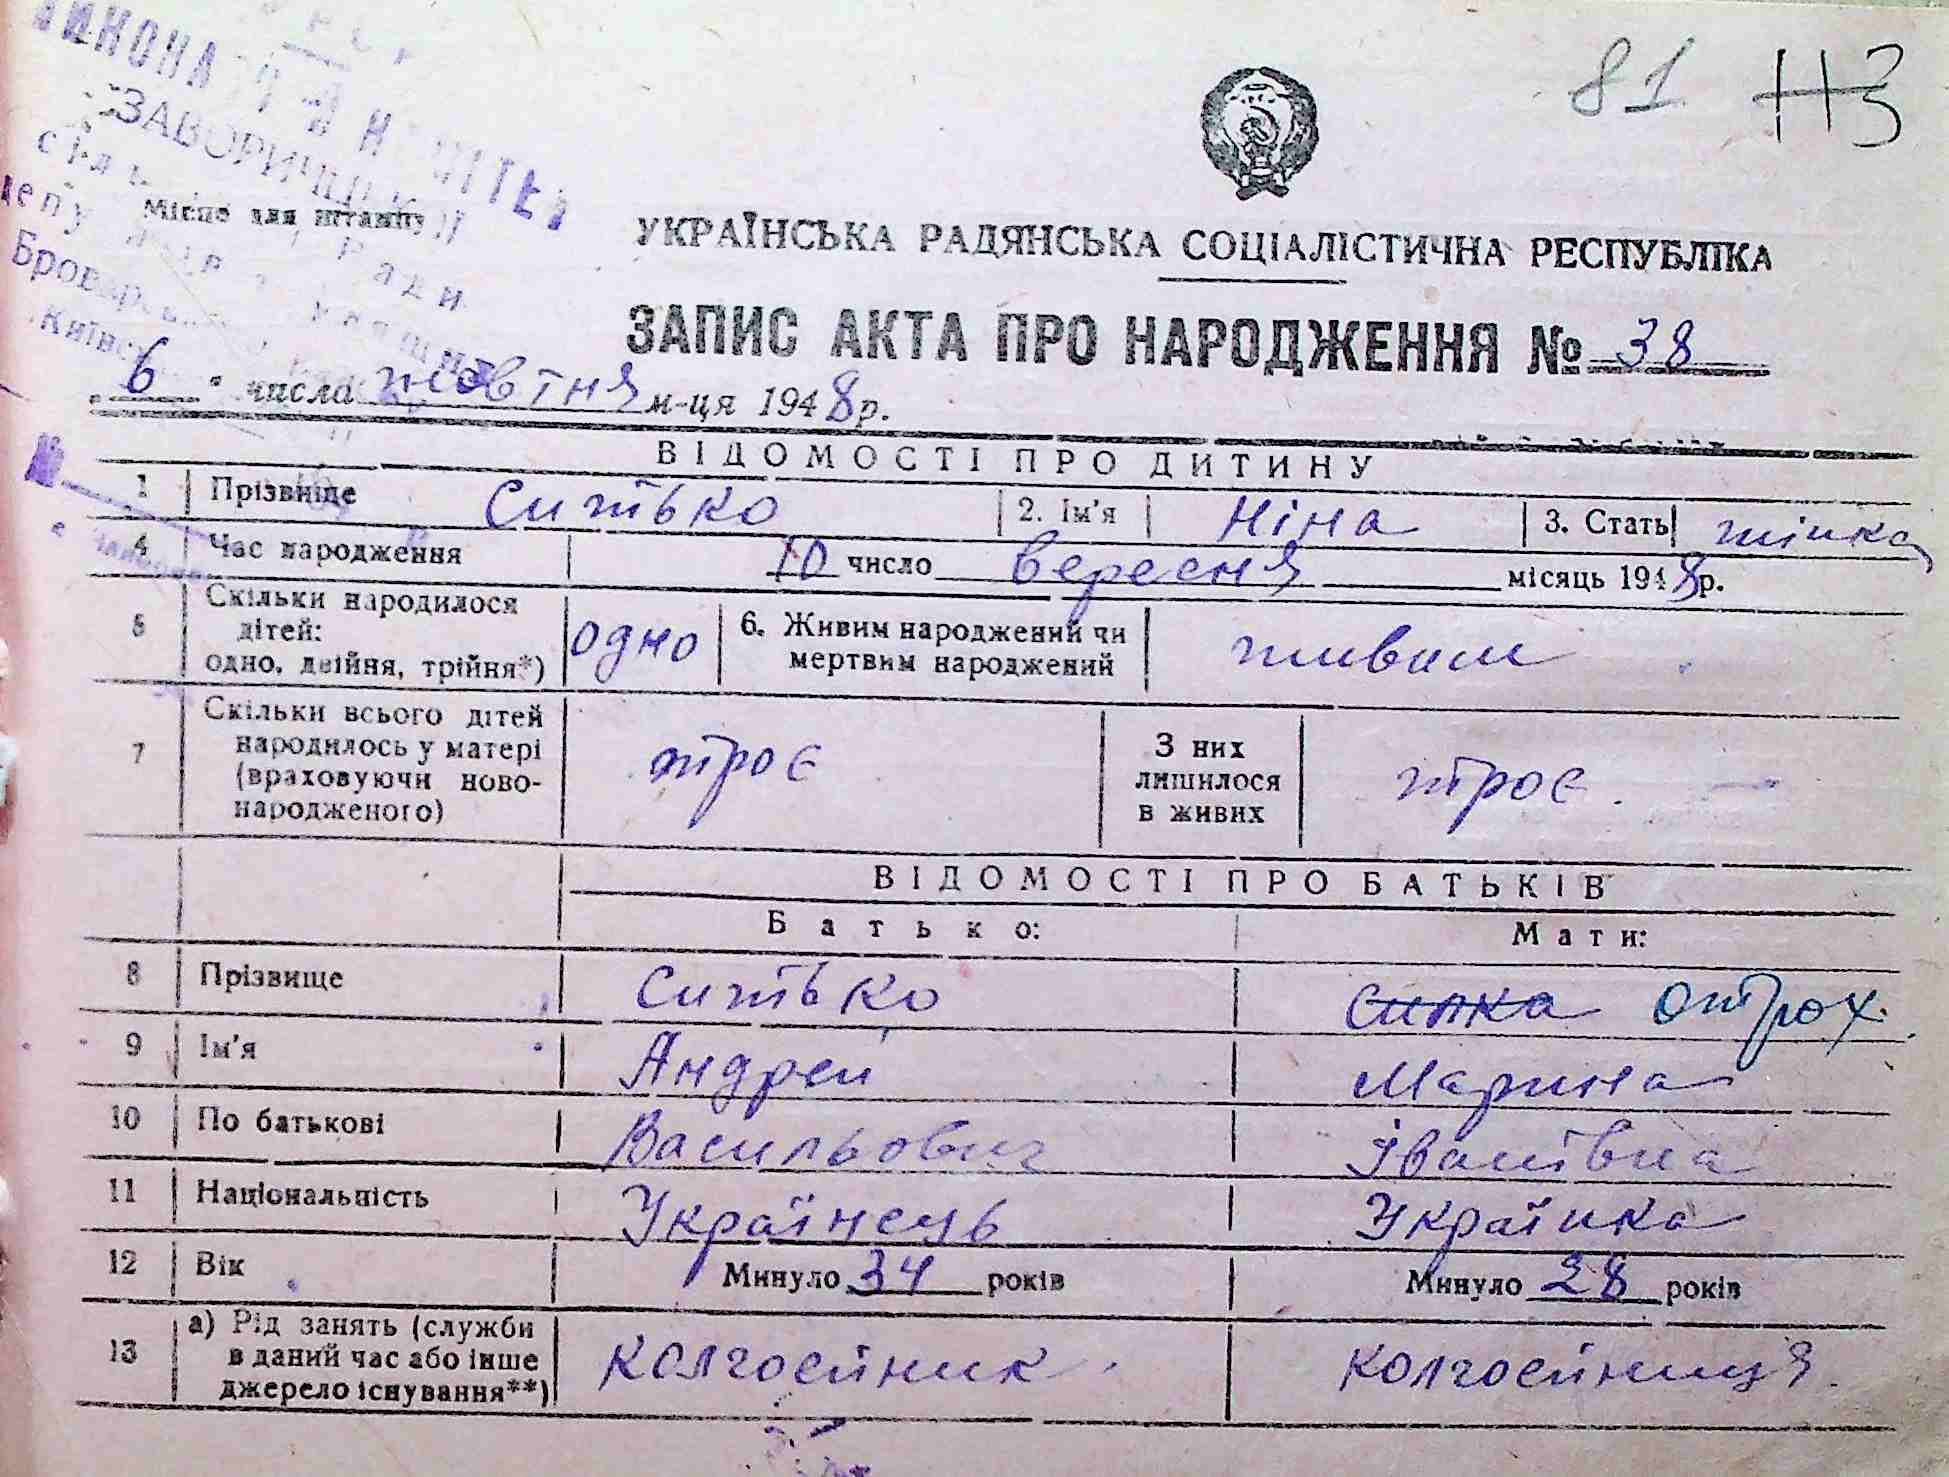 81 113
ЗАВОРИЦЬКОЇ
Місце для штампу
УКРАЇНСЬКА РАДЯНСЬКА СОЦІАЛІСТИЧНА РЕСПУБЛІКА
ЗАПИС АКТА ПРО НАРОДЖЕННЯ № 38
„6“ числа жовтня м-ця 1948 р.
ВІДОМОСТІ ПРО ДИТИНУ
1 Прізвище Ситько 2. Ім'я Ніна 3. Стать жінка
4 Час народження 10 число вересня місяць 1948 р.
5 Скільки народилося
дітей:
одно, двійня, трійня*) одно 6. Живим народжений чи
мертвим народжений живим
7 Скільки всього дітей
народилось у матері
(враховуючи ново-
народженого) троє З них
лишилося
в живих троє.
ВІДОМОСТІ ПРО БАТЬКІВ
Батько: Мати:
8 Прізвище Ситько Отрох.
9 Ім'я Андрей Марина
10 По батькові Васильович Іванівна
11 Національність Українець Українка
12 Вік Минуло 34 років Минуло 28 років
13 а) Рід занять (служби
в даний час або інше
джерело існування**) колгоспник колгоспниця.